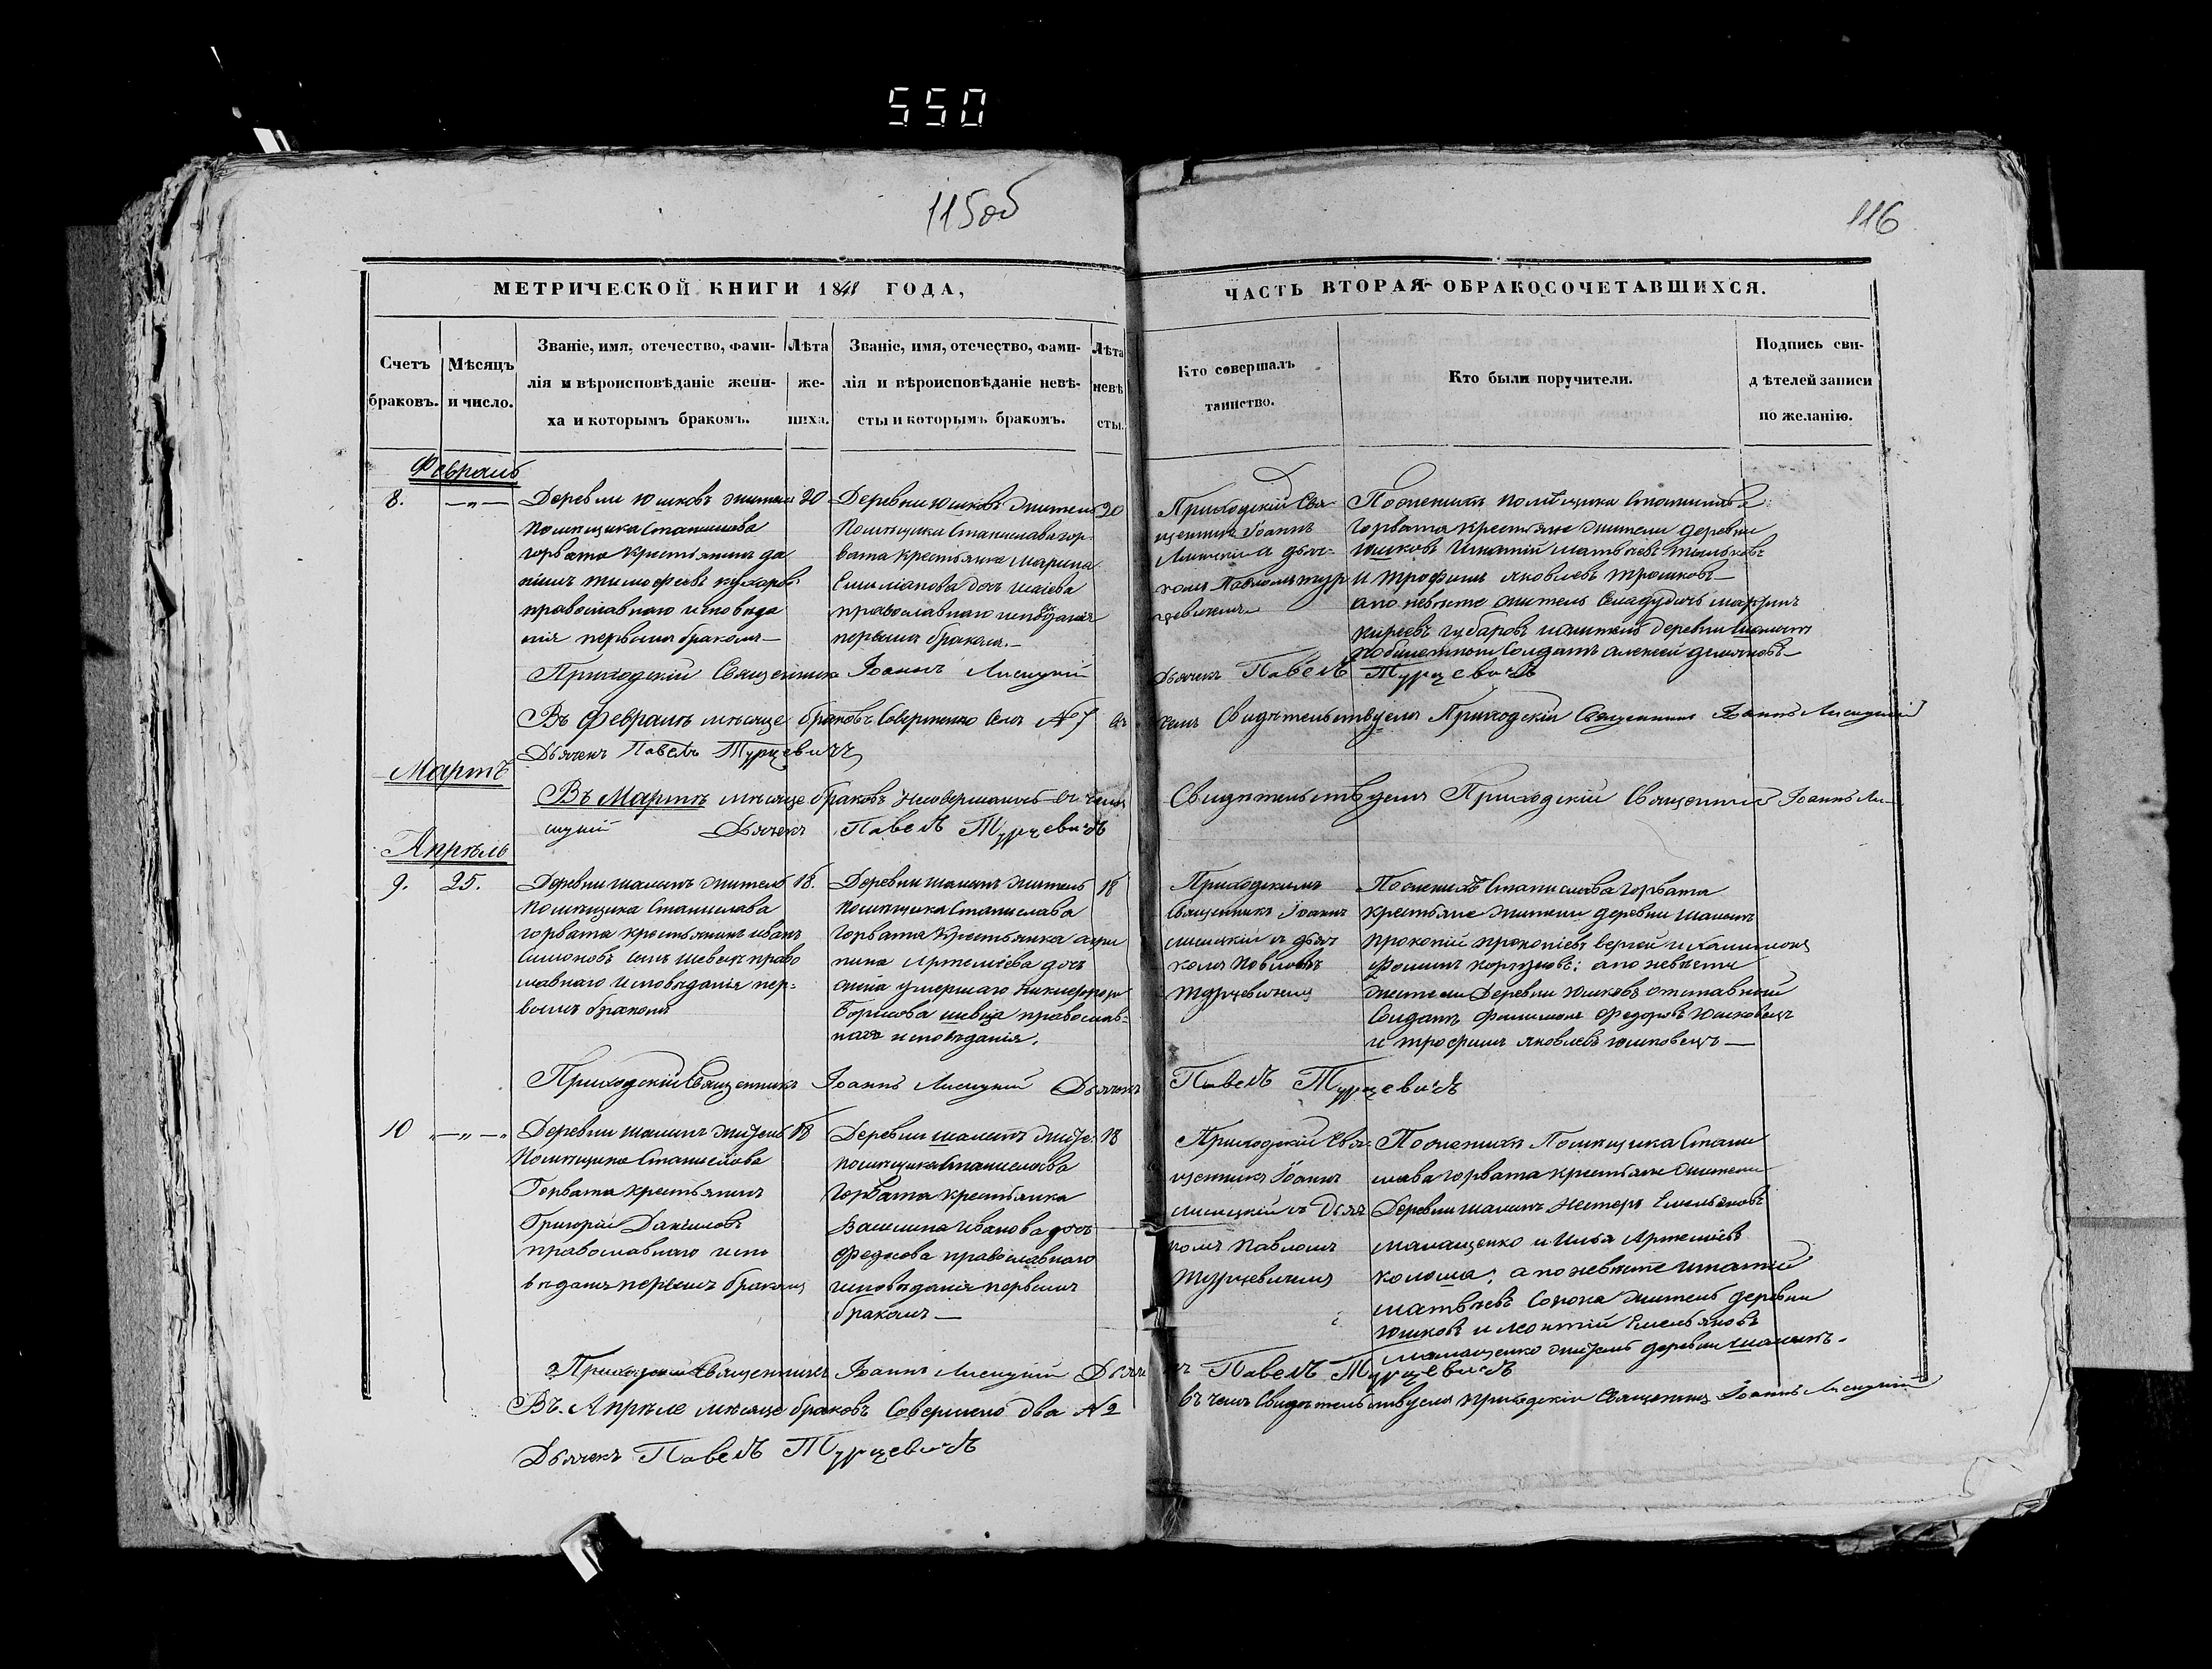 550
115об
116
МЕТРИЧЕСКОЙ КНИГИ 1848 ГОДА,
ЧАСТЬ ВТОРАЯ О БРАКОСОЧЕТАВШИХСЯ.
Счетъ браковъ.
Мѣсяцъ и число.
Званіе, имя, отечество, фами-
лія и вѣроисповѣданіе жени-
ха и которымъ бракомъ.
Лѣта
же-
ниха.
Званіе, имя, отечество, фами-
лія и вѣроисповѣданіе невѣ-
сты и которымъ бракомъ.
Лѣта
невѣ
сты.
Кто совершалъ
таинство.
Кто были поручители.
Подпись сви-
дѣтелей записи
по желанію.
Февраль
8.
Деревни Юшковъ житель
помѣщика Станислава
горвата крестьянинъ да
ніилъ тимофеевъ
православнаго исповѣда
нія первымъ бракомъ
20
Деревни Юшковъ житель
помѣщика Станислава гор
вата крестьянка марина
Емиліанова дочь
православнаго исповѣданія
первымъ бракомъ.
20
Приходскій Свя
щенникъ Іоаннъ
Лисицкій а дьяч
комъ Павломъ тур
цевичемъ
По женихѣ помѣщика Станислава
горвата крестьяне жители деревни
Юшковъ Игнатій матвѣевъ
и трофимъ яковлевъ трошковъ
а по невѣсте житель мартинъ
киреевъ губаровъ деревни
Солдатъ алексей
Приходскій Священникъ Іоаннъ Лисицкій
Дьячекъ Павелъ Турцевичъ
Въ февралѣ мѣсяце браковъ Совершено семь № 7 въ
чемъ Свидѣтельствуемъ Приходскій Священникъ Іоаннъ Лисицкій
Дьячекъ Павелъ Турцевичъ
Мартъ
Въ Мартѣ мѣсяце браковъ несовершалось въ чемъ
Свидѣтельствуемъ Приходскій Священникъ Іоаннъ Ли-
сицкій Дьячекъ Павелъ Турцевичъ
Апрѣль
9.
25.
Деревни житель
помѣщика Станислава
горвата крестьянинъ иванъ
Симоновъ Сынъ шевекъ право
славнаго исповѣданія пер-
вымъ бракомъ
18.
Деревни житель
помѣщика Станислава
горвата крестьянка агри
пина Артеміева дочь
умершаго
Борисова шевца православ-
наго исповѣданія.
18
Приходскимъ
Священникъ Іоаннъ
лисицкій съ дьяч
комъ Павломъ
турцевичемъ
По женихѣ Станислава горвата
крестьяне жители деревни
прокопій прокопіевъ
фоминъ а по невѣсте
жители Деревни Юшковъ отставной
Солдатъ филимонъ Федоровъ Юшковецъ
и трофимъ яковлевъ юшковецъ
Приходскій Священникъ Іоаннъ Лисицкій Дьячекъ
Павелъ Турцевичъ
10
Деревни житель
помѣщика Станислава
Горвата крестьянинъ
Григорій Даниловъ
православнаго испо
вѣданія первымъ бракомъ
18
Деревни жител
помѣщика Станислава
горвата крестьянка
Васишна Иванова дочь
православнаго
исповѣданія первымъ
бракомъ
18
Приходскій Свя-
щенникъ Іоаннъ
лисицкій съ Дьяч
комъ Павломъ
турцевичемъ
По женихѣ Помѣщика Стани
слава горвата крестьяне жители
Деревни Несторъ Емельяновъ
малащенко и Илья Артеміевъ
колоша; а по невѣсте игнатій
матвѣевъ житель деревни
юшковъ и леонтій Емельяновъ
малащенко житель деревни
Приходскій Священникъ Іоаннъ Лисицкій Дьяч
къ Павелъ Турцевичъ
Въ Апрѣле мѣсяце браковъ Совершено два № 2
въ чемъ Свидѣтельствуемъ приходскій Священникъ Іоаннъ Лисицкій
Дьячекъ Павелъ Турцевичъ